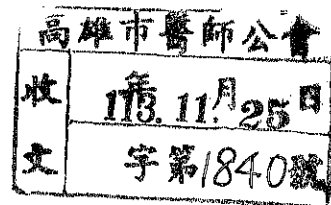 高雄市醫師公會
收文
113年11月25日
字第1840號